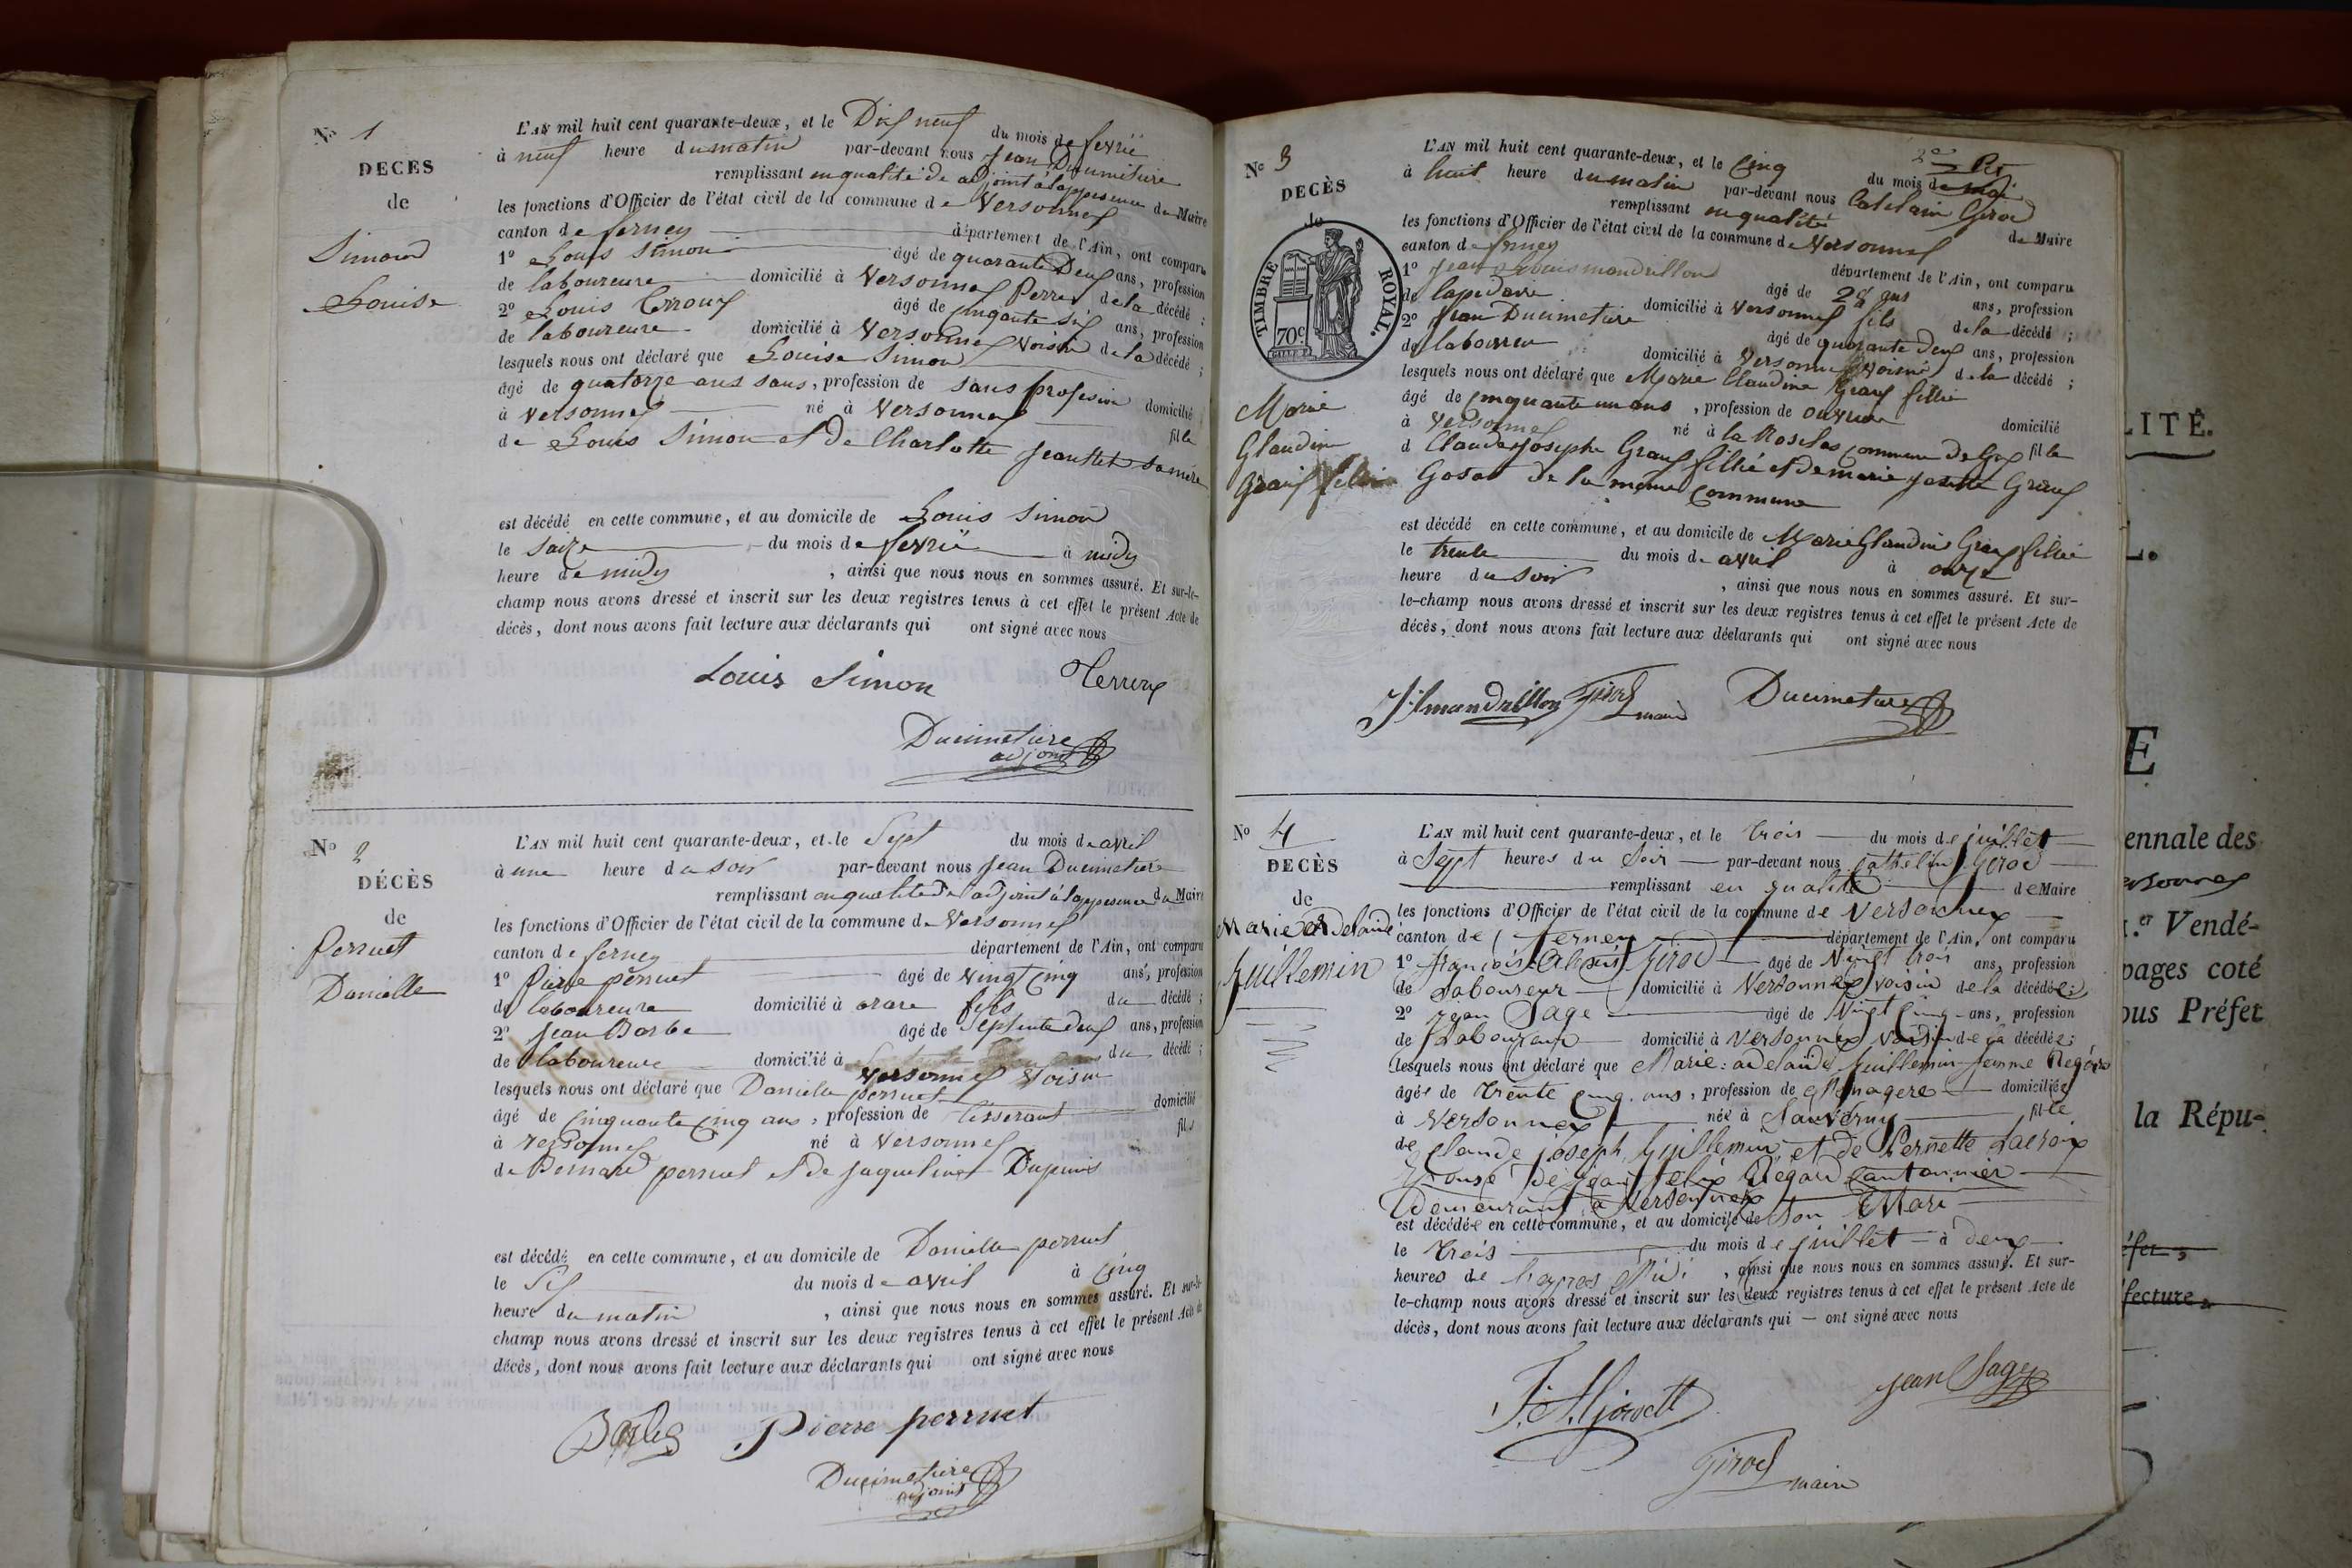 No 1
DECES
de
Simond
Louise
L'AN mil huit cent quarante-deux, et le Dix neuf du mois de fevrié
à neuf heure du matin par-devant nous Jean Ducimetiere
remplissant en qualité de adjoint à l'appsence du Maire
les fonctions d'Officier de l'état civil de la commune de Versonnex
canton de ferney département de l'Ain, ont comparu
1° Louis Simon âgé de quarante Deux ans, profession
de laboureure domicilié à Versonnex Perre de la décédé ;
2° Louis Terroux âgé de cinqante six ans, profession
de laboureure domicilié à Versonnex Voisin de la décédé ;
lesquels nous ont déclaré que Louise Simon
âgé de quatorze ans sans, profession de sans profesion domicilié
à Versonnex né à Versonnex fille
de Louis Simon et De Charlotte Jeanttet sa mère
est décédé en cette commune, et au domicile de Louis Simon
le saize du mois de fevrié à midy
heure de midy , ainsi que nous nous en sommes assuré. Et sur-le-
champ nous avons dressé et inscrit sur les deux registres tenus à cet effet le présent Acte de
décès, dont nous avons fait lecture aux déclarants qui ont signé avec nous
Louis Simon Terroux
Ducimetiere
adjoint
No 2
DÉCÈS
de
Perruet
Danielle
L'AN mil huit cent quarante-deux, et le Sept du mois de avril
à une heure du soir par-devant nous Jean Ducimetiere
remplissant en qualite de adjoint à l'appsence du Maire
les fonctions d'Officier de l'état civil de la commune de Versonnex
canton de ferney département de l'Ain, ont comparu
1° Pierre perruet âgé de vingt cinq ans, profession
de laboureure domicilié à ornex fils du décédé ;
2° Jean Barbe âgé de Septente deux ans, profession
de laboureure domicilié à du décédé ;
Versonnex Voisin
lesquels nous ont déclaré que Danielle perruet
âgé de Cinquante Cinq ans, profession de tisserant domicilié
à Versonnex né à Versonnex fils
de Bernard perruet et de Jaqueline Dupuis
est décédé en cette commune, et au domicile de Danielle perruet
le Six du mois de avril à Cinq
heure du matin , ainsi que nous nous en sommes assuré. Et sur-le-
champ nous avons dressé et inscrit sur les deux registres tenus à cet effet le présent Acte de
décès, dont nous avons fait lecture aux déclarants qui ont signé avec nous
Barbe Pierre perruet
Ducimetiere
adjoint
No 3
DECÈS
de
TIMBRE ROYAL.
70c
Marie
Glaudine
Graux fillié
L'AN mil huit cent quarante-deux, et le Cinq du mois de mai
à huit heure du matin par-devant nous Catelain Girod
remplissant en qualité de Maire
les fonctions d'Officier de l'état civil de la commune de Versonnex
canton de ferney département de l'Ain, ont comparu
1° Jean Louis mandrillon âgé de 28 ans ans, profession
de lapidaire domicilié à Versonnex fils de la décédé ;
2° Jean Ducimetiere âgé de quarante deux ans, profession
de laboureu domicilié à Versonnex Voisin de la décédé ;
lesquels nous ont déclaré que Marie Claudine Graux fillié
âgé de cinquante un ans , profession de domicilié
à Versonnex né à la commune de Gex fille
d Claude Josephe Graux fillié et de marie Josette Graux
Gosat De la meme Commune
est décédé en cette commune, et au domicile de Marie Glaudine Graux fillié
le trente du mois de avril à onze
heure du soir , ainsi que nous nous en sommes assuré. Et sur-
le-champ nous avons dressé et inscrit sur les deux registres tenus à cet effet le présent Acte de
décès, dont nous avons fait lecture aux déclarants qui ont signé avec nous
J. L mandrillon Girod maire Ducimetiere
No 4
DECÈS
de
Marie Adelaide
Guillemin
L'AN mil huit cent quarante-deux, et le trois du mois de juillet
à Sept heures du Soir par-devant nous Cattelin Girod
remplissant en qualité de Maire
les fonctions d'Officier de l'état civil de la commune de Versonnex
canton de ferney département de l'Ain, ont comparu
1° françois Alexis Girod âgé de Vingt trois ans, profession
de Laboureur domicilié à Versonnex Voisin de la décédée ;
2° Jean Sage âgé de Vingt Cinq ans, profession
de Laboureur domicilié à Versonnex Voisin de la décédée ;
lesquels nous ont déclaré que Marie adelaïde Guillemin femme Regard
âgée de trente cinq ans, profession de Ménagere domiciliée
à Versonnex née à Sauverny fille
de Claude joseph Guillemin et de Pernette Lacroix
Epouse De jean felix Régard Cantonnier
Demeurant à Versonnex
est décédée en cette commune, et au domicile de son Mari
le trois du mois de juillet à deux
heures de l'apres Midi , ainsi que nous nous en sommes assuré. Et sur-
le-champ nous avons dressé et inscrit sur les deux registres tenus à cet effet le présent Acte de
décès, dont nous avons fait lecture aux déclarants qui — ont signé avec nous
jean Sage
Girod
maire
LITÉ.
L.
E
ennale des
ersonnex
.er Vendé-
pages coté
ous Préfet
la Répu-
éfet,
fecture